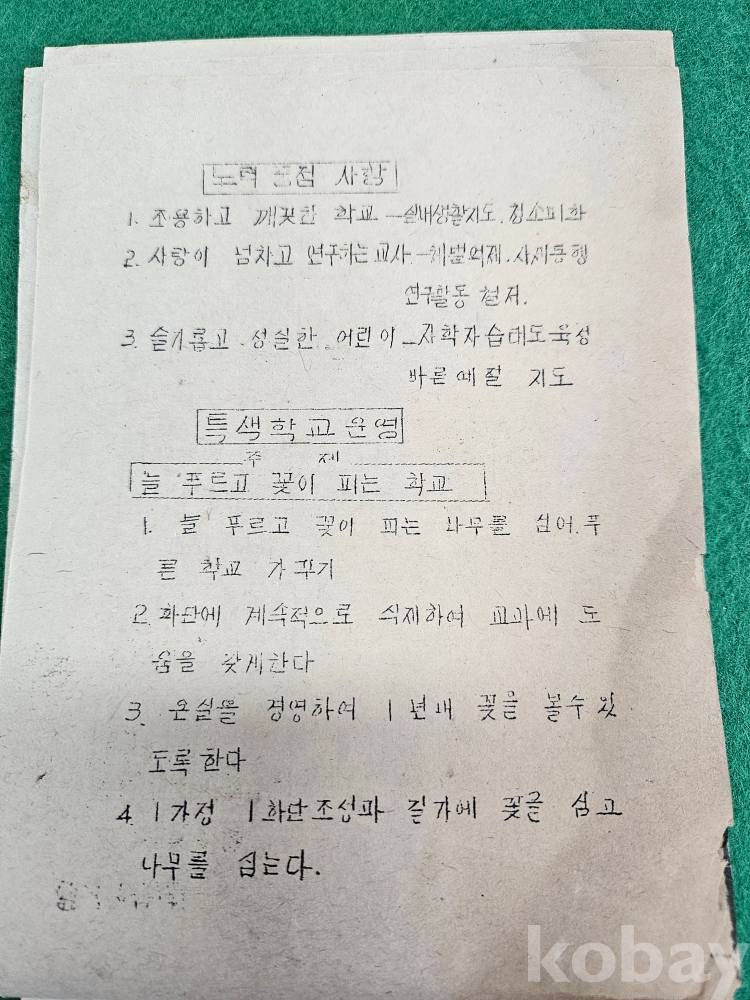 노력 중점 사항
1. 조용하고 깨끗한 학교 - 실내생활지도. 청소미화
2. 사랑이 넘차고 연구하는 교사 - 체벌억제. 사제동행
연구활동 철저.
3. 슬기롭고 성실한 어린이 - 자학자습태도육성
바른예절 지도
특색학교운영
주 제
늘 푸르고 꽃이 피는 학교
1. 늘 푸르고 꽃이 피는 나무를 심어. 푸
른 학교 가꾸기
2. 화단에 계속적으로 식재하여 교과에 도
움을 맞게한다
3. 온실을 경영하여 1년내 꽃을 볼수있
도록한다
4. 1가정 1화단조성과 길가에 꽃을 심고
나무를 심는다.
kobay